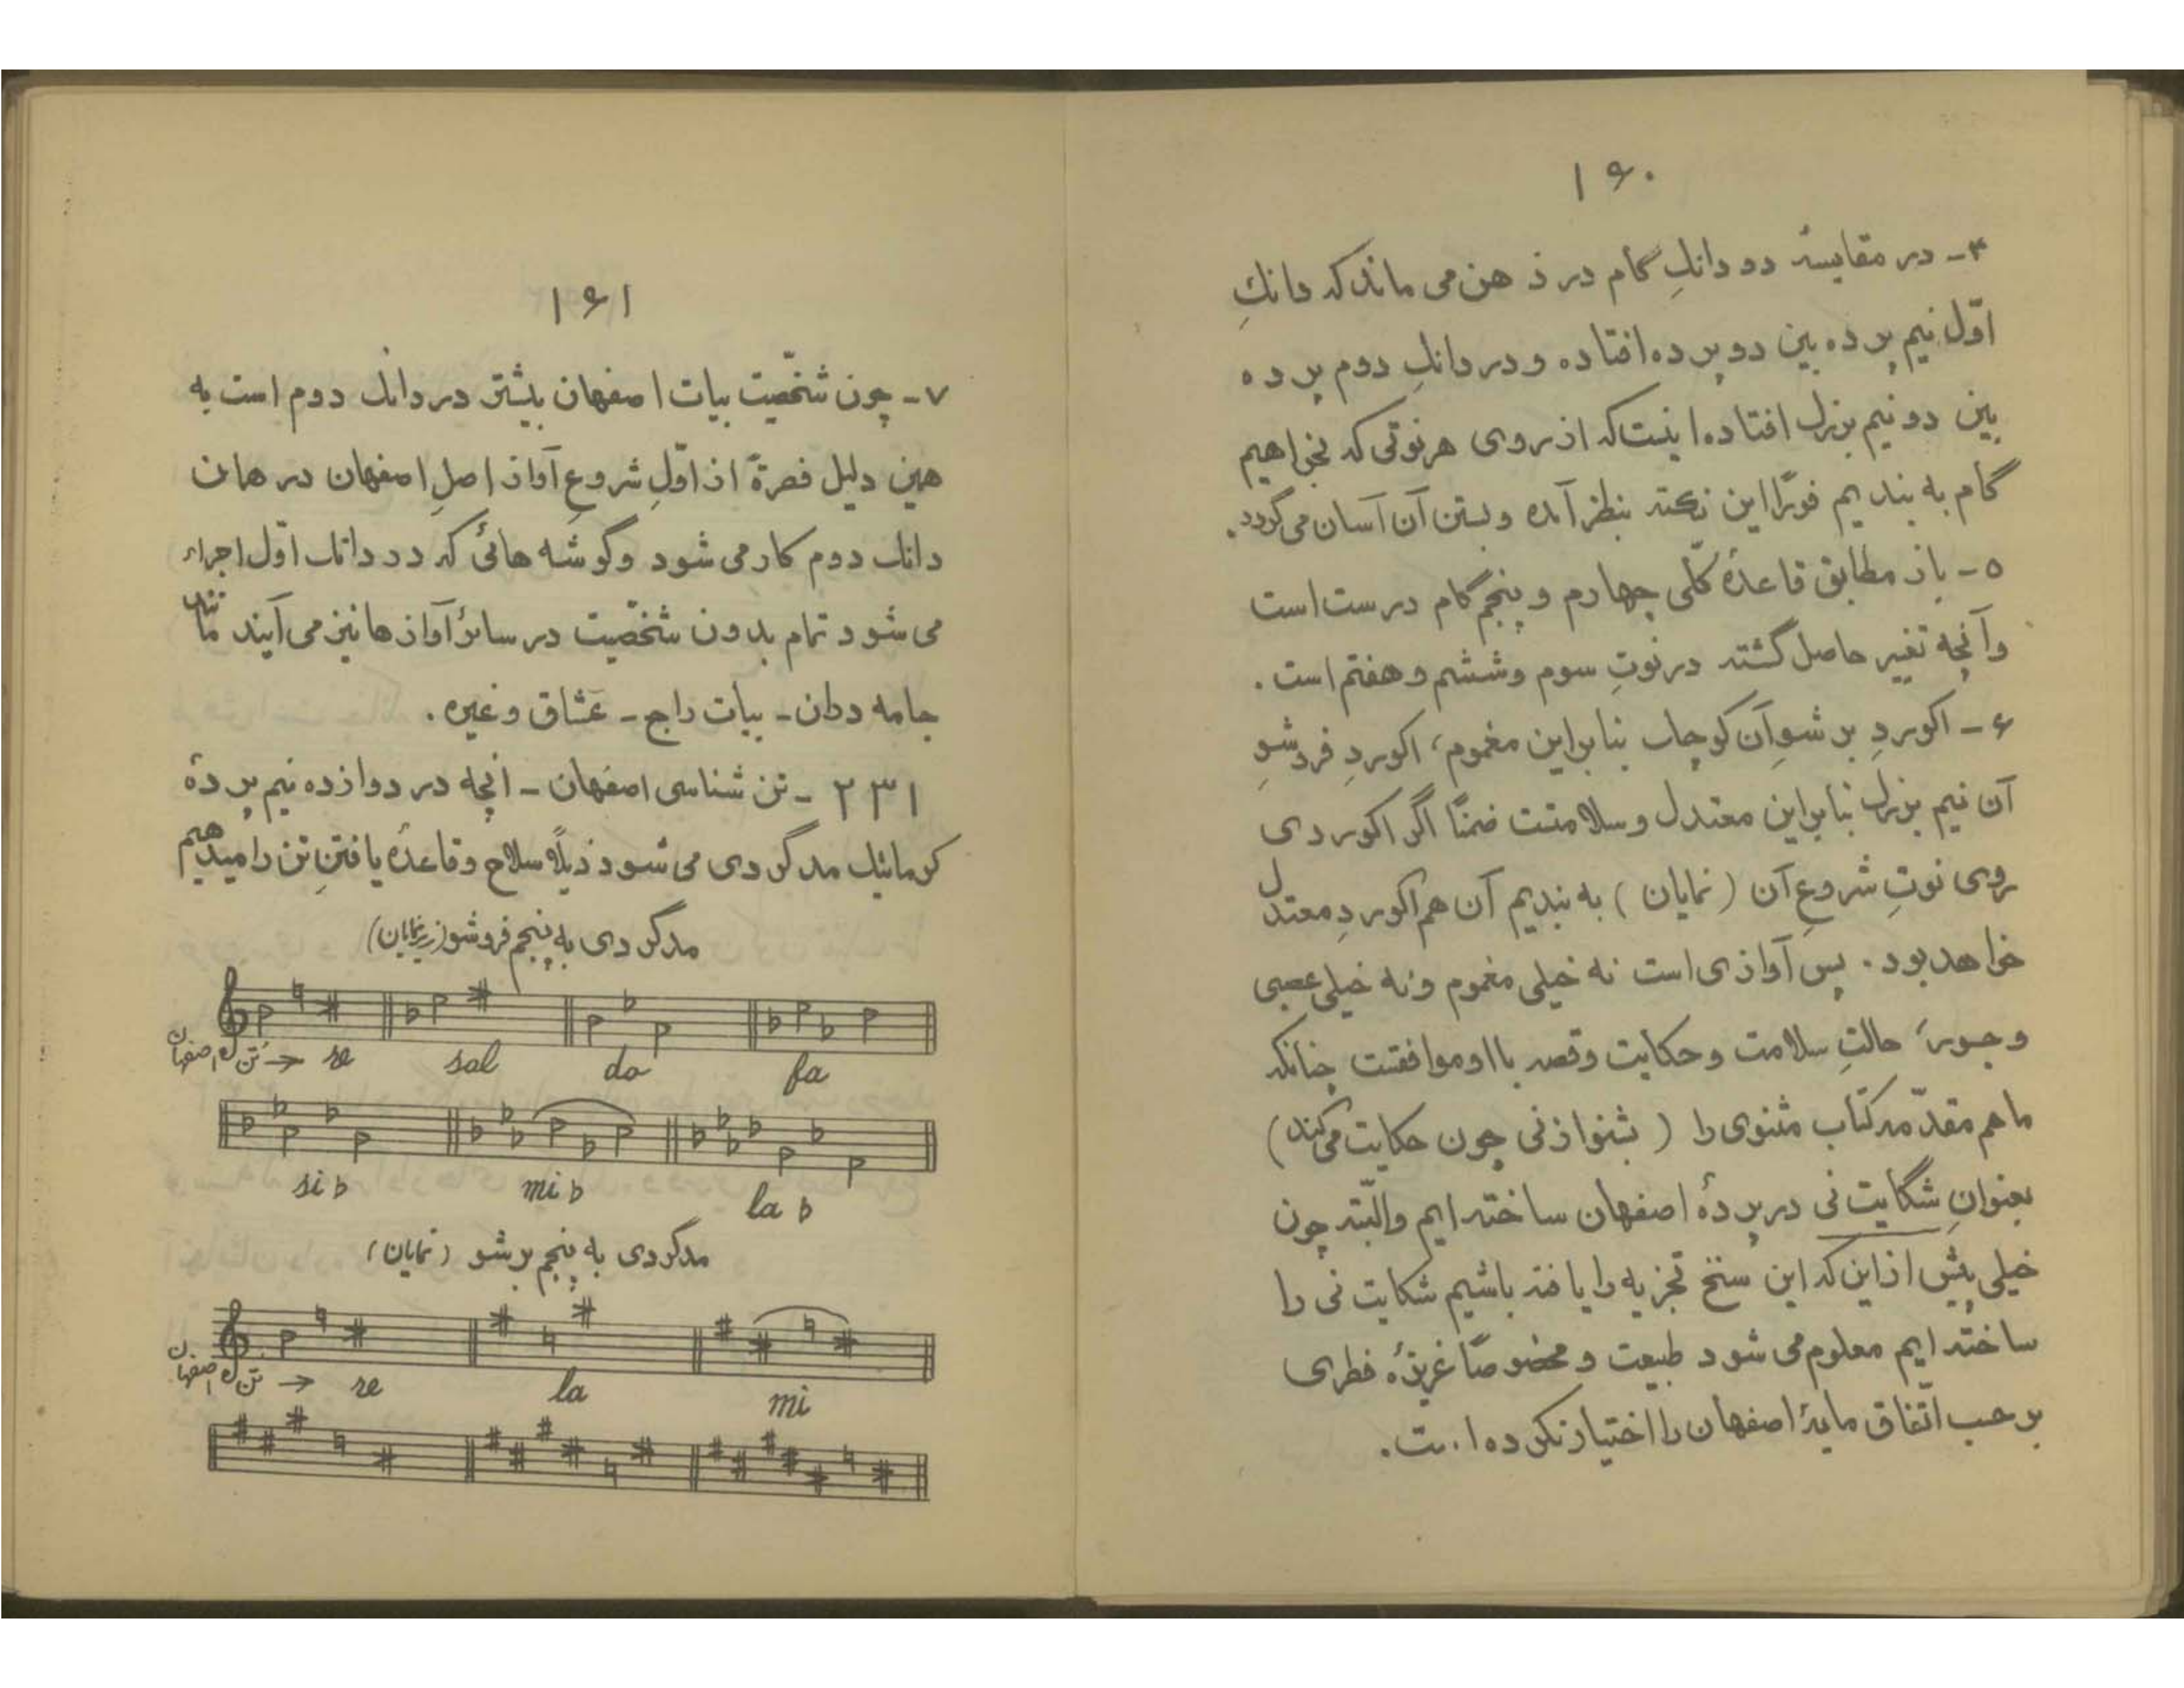 ۱۶۰
۴- در مقایسهٔ دو دانكِ گام در ذهن می ماند که دانكِ
اوّل نیم پرده بین دو پرده افتاده و در دانكِ دوم پرده
بین دو نیم بزرك افتاده اینست که از روی هر نوتی که بخواهیم
گام به بندیم فوراً این نکته بنظر آمده و بستن آن آسان می گردد.
۵- باز مطابق قاعدهٔ کلّی چهارم و پنجم گام درست است
و آنچه تغییر حاصل گشته در نوتِ سوم و ششم و هفتم است.
۶- اکوردِ بر شوِ آن کوچك بنابراین مغموم، اکوردِ فروشوِ
آن نیم بزرك بنابراین معتدل و سلامتست ضمناً اگر اکوردی
روی نوتِ شروعِ آن (نمایان) به بندیم آن هم اکوردِ معتدل
خواهد بود. پس آوازی است نه خیلی مغموم و نه خیلی عصبی
و جسور، حالتِ سلامت و حکایت و قصه با او موافقست چنانکه
ما هم مقدّمهٔ کتاب مثنوی را (بشنو از نی چون حکایت می کند)
بعنوانِ شکایت نی در پردهٔ اصفهان ساخته ایم و البتّه چون
خیلی پیش از این که این سنخ تجزیه را یافته باشیم شکایت نی را
ساخته ایم معلوم می شود طبیعت و مخصوصاً غریزهٔ فطری
بر حسب اتّفاق مایهٔ اصفهان را اختیار نکرده است.
۱۶۱
۷- چون شخصّیت بیات اصفهان بیشتر در دانك دوم است به
همین دلیل فطرةً از اوّلِ شروعِ آواز اصلِ اصفهان در همان
دانك دوم کار می شود و گوشه هائی که در دانك اوّل اجراء
می شود تمام بدون شخصّیت در سائر آوازها نیز می آیند مانند
جامه دران - بیات راجع - عشّاق و غیره.
۲۳۱ - تن شناسی اصفهان - آنچه در دوازده نیم پردهٔ
کرماتیك مدگردی می شود ذیلاً سلاح و قاعدهٔ یافتنِ تن را میدهیم
مدگردی به پنجم فروشو (زیر نمایان)
تنِ اصفهان → re sol do fa
si b mi b la b
مدگردی به پنجم بر شو (نمایان)
تنِ اصفهان → re la mi